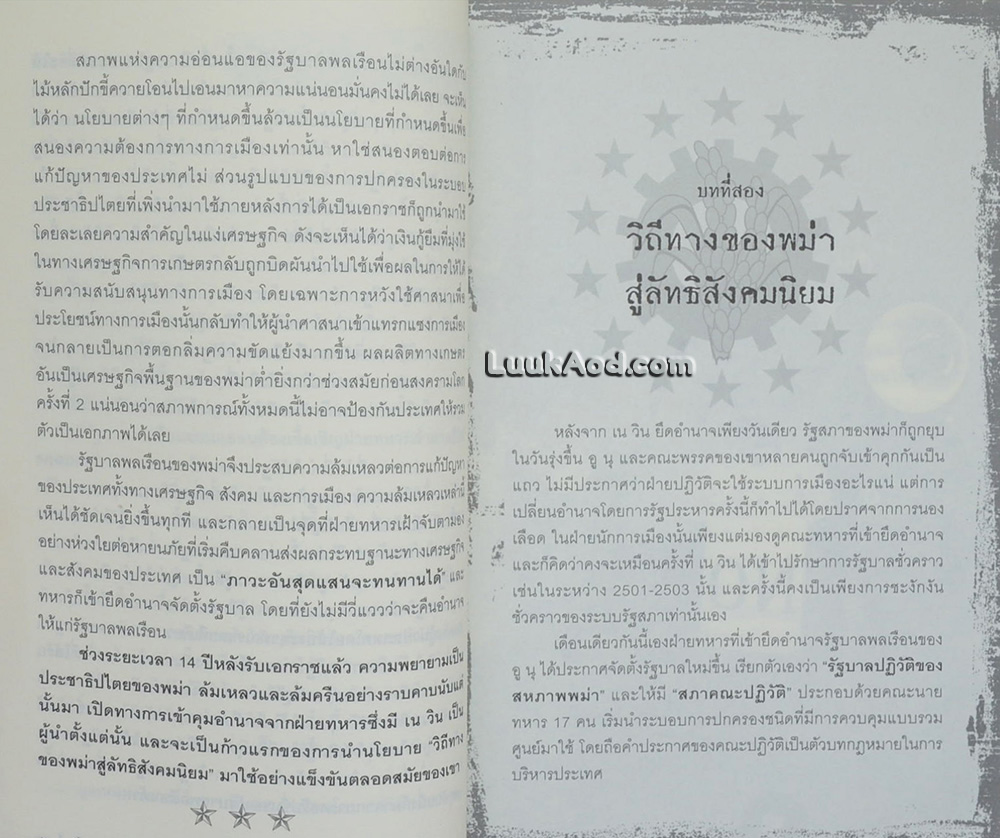 สภาพแห่งความอ่อนแอของรัฐบาลพลเรือนไม่ต่างอันใดกับ
ไม้หลักปักขี้ควายโอนไปเอนมาหาความแน่นอนมั่นคงไม่ได้เลย จะเห็น
ได้ว่า นโยบายต่างๆ ที่กำหนดขึ้นล้วนเป็นนโยบายที่กำหนดขึ้นเพื่อ
สนองความต้องการทางการเมืองเท่านั้น หาใช่สนองตอบต่อการ
แก้ปัญหาของประเทศไม่ ส่วนรูปแบบของการปกครองในระบอบ
ประชาธิปไตยที่เพิ่งนำมาใช้ภายหลังการได้เป็นเอกราชก็ถูกนำมาใช้
โดยละเลยความสำคัญในแง่เศรษฐกิจ ดังจะเห็นได้ว่าเงินกู้ยืมที่มุ่งใช้
ในทางเศรษฐกิจการเกษตรกลับถูกบิดผันนำไปใช้เพื่อผลในการให้ได้
รับความสนับสนุนทางการเมือง โดยเฉพาะการหวังใช้ศาสนาเพื่อ
ประโยชน์ทางการเมืองนั้นกลับทำให้ผู้นำศาสนาเข้าแทรกแซงการเมือง
จนกลายเป็นการตอกลิ่มความขัดแย้งมากขึ้น ผลผลิตทางเกษตร
อันเป็นเศรษฐกิจพื้นฐานของพม่าต่ำยิ่งกว่าช่วงสมัยก่อนสงครามโลก
ครั้งที่ 2 แน่นอนว่าสภาพการณ์ทั้งหมดนี้ไม่อาจป้องกันประเทศให้รวม
ตัวเป็นเอกภาพได้เลย
รัฐบาลพลเรือนของพม่าจึงประสบความล้มเหลวต่อการแก้ปัญหา
ของประเทศทั้งทางเศรษฐกิจ สังคม และการเมือง ความล้มเหลวเหล่านี้
เห็นได้ชัดเจนยิ่งขึ้นทุกที และกลายเป็นจุดที่ฝ่ายทหารเฝ้าจับตามอง
อย่างห่วงใยต่อหายนภัยที่เริ่มคืบคลานส่งผลกระทบฐานะทางเศรษฐกิจ
และสังคมของประเทศ เป็น "ภาวะอันสุดแสนจะทนทานได้" และ
ทหารก็เข้ายึดอำนาจจัดตั้งรัฐบาล โดยที่ยังไม่มีวี่แววว่าจะคืนอำนาจ
ให้แก่รัฐบาลพลเรือน
ช่วงระยะเวลา 14 ปีหลังรับเอกราชแล้ว ความพยายามเป็น
ประชาธิปไตยของพม่า ล้มเหลวและล้มครืนอย่างราบคาบนับแต่
นั้นมา เปิดทางการเข้าคุมอำนาจจากฝ่ายทหารซึ่งมี เน วิน เป็น
ผู้นำตั้งแต่นั้น และจะเป็นก้าวแรกของการนำนโยบาย "วิถีทาง
ของพม่าสู่ลัทธิสังคมนิยม" มาใช้อย่างแข็งขันตลอดสมัยของเขา
บทที่สอง
วิถีทางของพม่า
สู่ลัทธิสังคมนิยม
LuukAod.com
หลังจาก เน วิน ยึดอำนาจเพียงวันเดียว รัฐสภาของพม่าก็ถูกยุบ
ในวันรุ่งขึ้น อู นุ และคณะพรรคของเขาหลายคนถูกจับเข้าคุกกันเป็น
แถว ไม่มีประกาศว่าฝ่ายปฏิวัติจะใช้ระบบการเมืองอะไรแน่ แต่การ
เปลี่ยนอำนาจโดยการรัฐประหารครั้งนี้ก็ทำไปได้โดยปราศจากการนอง
เลือด ในฝ่ายนักการเมืองนั้นเพียงแต่มองดูคณะทหารที่เข้ายึดอำนาจ
และก็คิดว่าคงจะเหมือนครั้งที่ เน วิน ได้เข้าไปรักษาการรัฐบาลชั่วคราว
เช่นในระหว่าง 2501-2503 นั้น และครั้งนี้คงเป็นเพียงการชะงักงัน
ชั่วคราวของระบบรัฐสภาเท่านั้นเอง
เดือนเดียวกันนี้เองฝ่ายทหารที่เข้ายึดอำนาจรัฐบาลพลเรือนของ
อู นุ ได้ประกาศจัดตั้งรัฐบาลใหม่ขึ้น เรียกตัวเองว่า "รัฐบาลปฏิวัติของ
สหภาพพม่า" และให้มี "สภาคณะปฏิวัติ" ประกอบด้วยคณะนาย
ทหาร 17 คน เริ่มนำระบอบการปกครองชนิดที่มีการควบคุมแบบรวม
ศูนย์มาใช้ โดยถือคำประกาศของคณะปฏิวัติเป็นตัวบทกฎหมายในการ
บริหารประเทศ